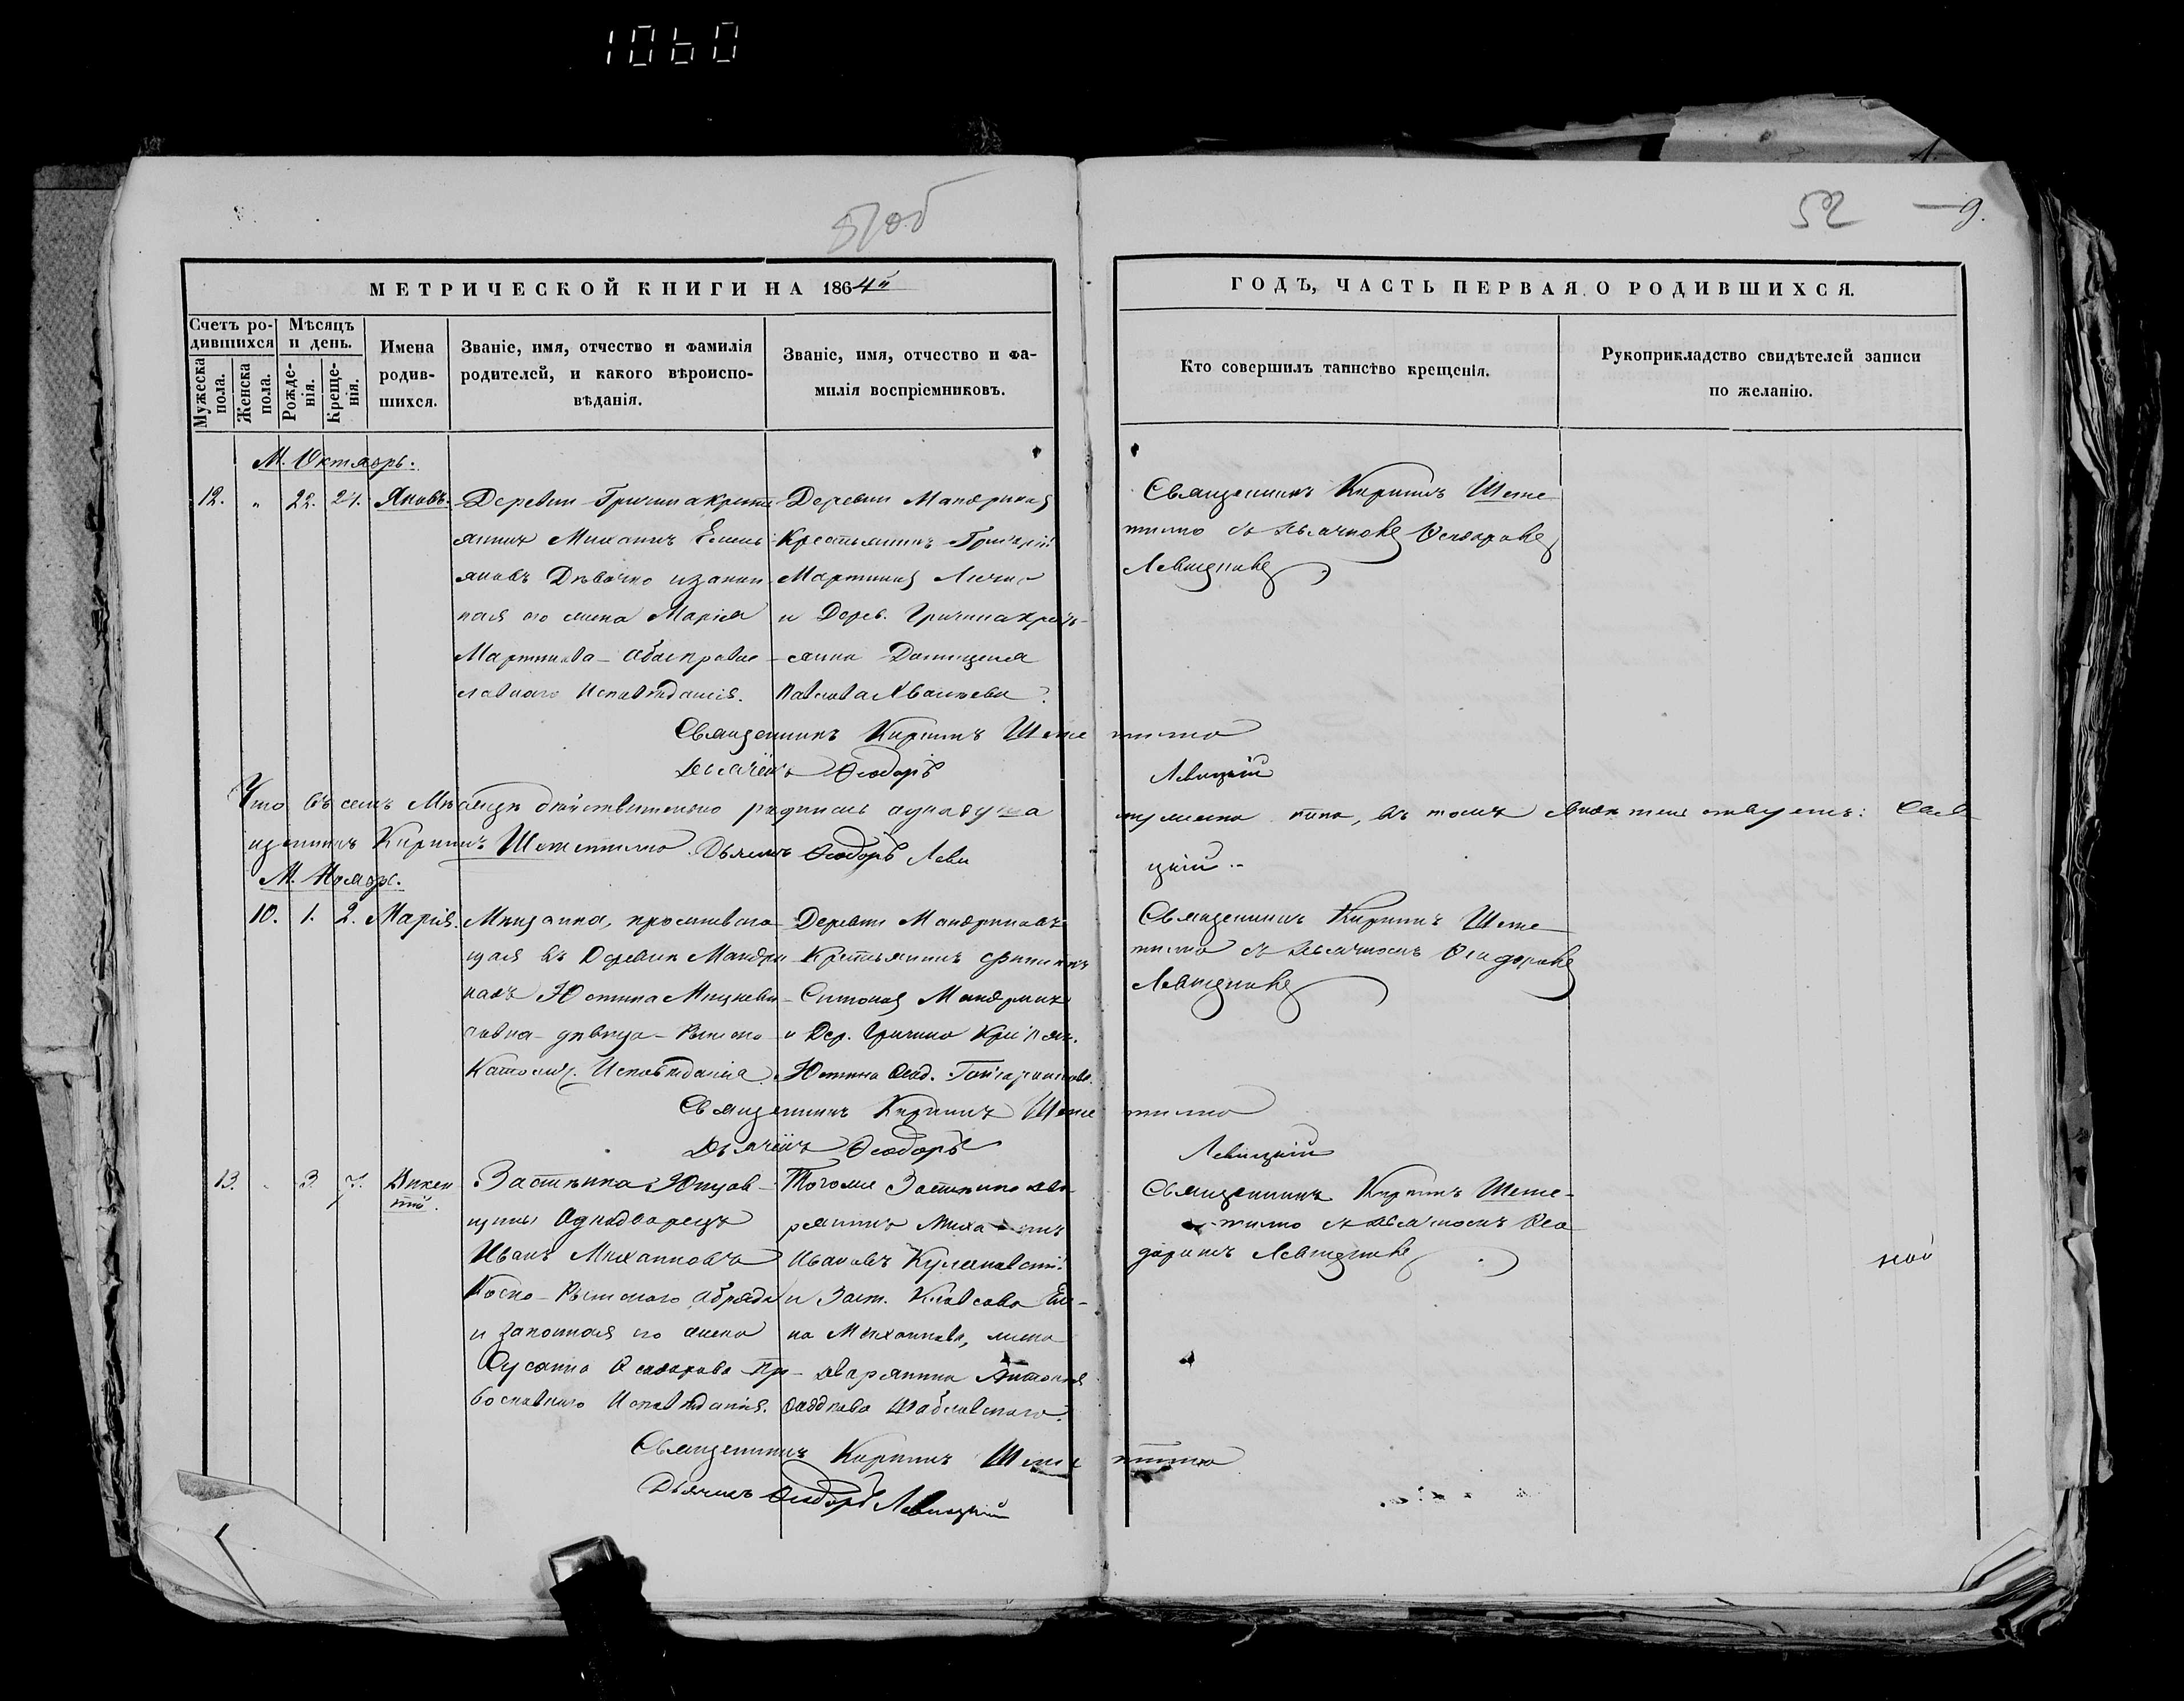 1060
51об
52
9.
МЕТРИЧЕСКОЙ КНИГИ НА 1864й
ГОДЪ, ЧАСТЬ ПЕРВАЯ О РОДИВШИХСЯ.
Счетъ родившихся
Мужеска пола.
Женска пола.
Мѣсяцъ и день.
Рожденія.
Крещенія.
Имена родившихся.
Званіе, имя, отчество и фамилія
родителей, и какого вѣроиспо-
вѣданія.
Званіе, имя, отчество и фа-
милія воспріемниковъ.
Кто совершилъ таинство крещенія.
Рукоприкладство свидѣтелей записи
по желанію.
М. Октябрь.
12. " 22. 24. Яковъ.
Деревни Гричина крестья
янинъ Михаилъ Емель
яновъ Дѣвочко и закон
ная его жена Марія
Мартинова оба право
славнаго Исповѣданія.
Деревни
Крестьянинъ Григорій
Мартиновъ
и Дерев. Гричина крестъ
янка Домицеля
Павлова
Священникъ Кириллъ Шеме
тилло съ дьячкомъ Ѳеодоромъ
Левицкимъ
Священникъ Кириллъ Шеметилло
Дьячекъ Ѳеодоръ Левицкій
Что въ семъ Мѣсяцѣ дѣйствительно родилась одна душа мужеска пола, въ томъ свидѣтельствуемъ: Свя
щенникъ Кириллъ Шеметилло. Дьячекъ Ѳеодоръ Левицкій.
М. Ноябрь.
10. 1. 2. Марія.
Мѣщанка, проживаю
щая въ Деревнѣ Мандри
кахъ Юстина
дѣвица Римско
Католич. Исповѣданія.
Деревни
Крестьянинъ Филиппъ
Симоновъ
и Дер. Гричина Крестьян.
Юстина Ѳеод.
Священникъ Кириллъ Шеме
тилло съ дьячкомъ Ѳеодоромъ
Левицкимъ
Священникъ Кириллъ Шеметилло
Дьячекъ Ѳеодоръ Левицкій
13. " 3. 7. Викен
тій.
Застѣнка
щины Однодворецъ
Иванъ Михайловъ
Коско Римскаго обряда
и законная его жена
Сусанна Ѳеодорова Пра
вославнаго Исповѣданія.
Тогоже Застѣнка дво
рянинъ Михаилъ
Ивановъ
и Заст.
на Михайлова, жена
дворянина Антонія
Фаддеева
Священникъ Кириллъ Шеме
тилло съ дьячкомъ Ѳео
доромъ Левицкимъ
Священникъ Кириллъ Шеметилло
Дьячекъ Ѳеодоръ Левицкій
ной